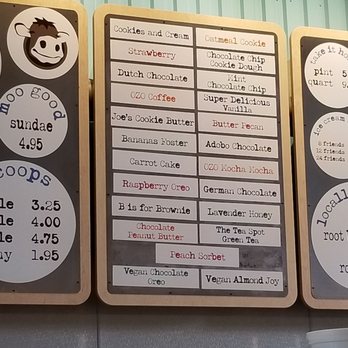 moo good
sundae
4.95
oops
le 3.25
le 4.00
le 4.75
ny 1.95
Cookies and Cream
Oatmeal Cookie
Strawberry
Chocolate Chip
Cookie Dough
Dutch Chocolate
Mint
Chocolate Chip
OZO Coffee
Super Delicious
Vanilla
Joe's Cookie Butter
Butter Pecan
Bananas Foster
Adobo Chocolate
Carrot Cake
OZO Mocha Mocha
Raspberry Oreo
German Chocolate
B is for Brownie
Lavender Honey
Chocolate
Peanut Butter
The Tea Spot
Green Tea
Peach Sorbet
Vegan Chocolate
Oreo
Vegan Almond Joy
take it ho
pint 5
quart 9
ice cream
8 friends
12 friends
24 friends
locall
root
ro